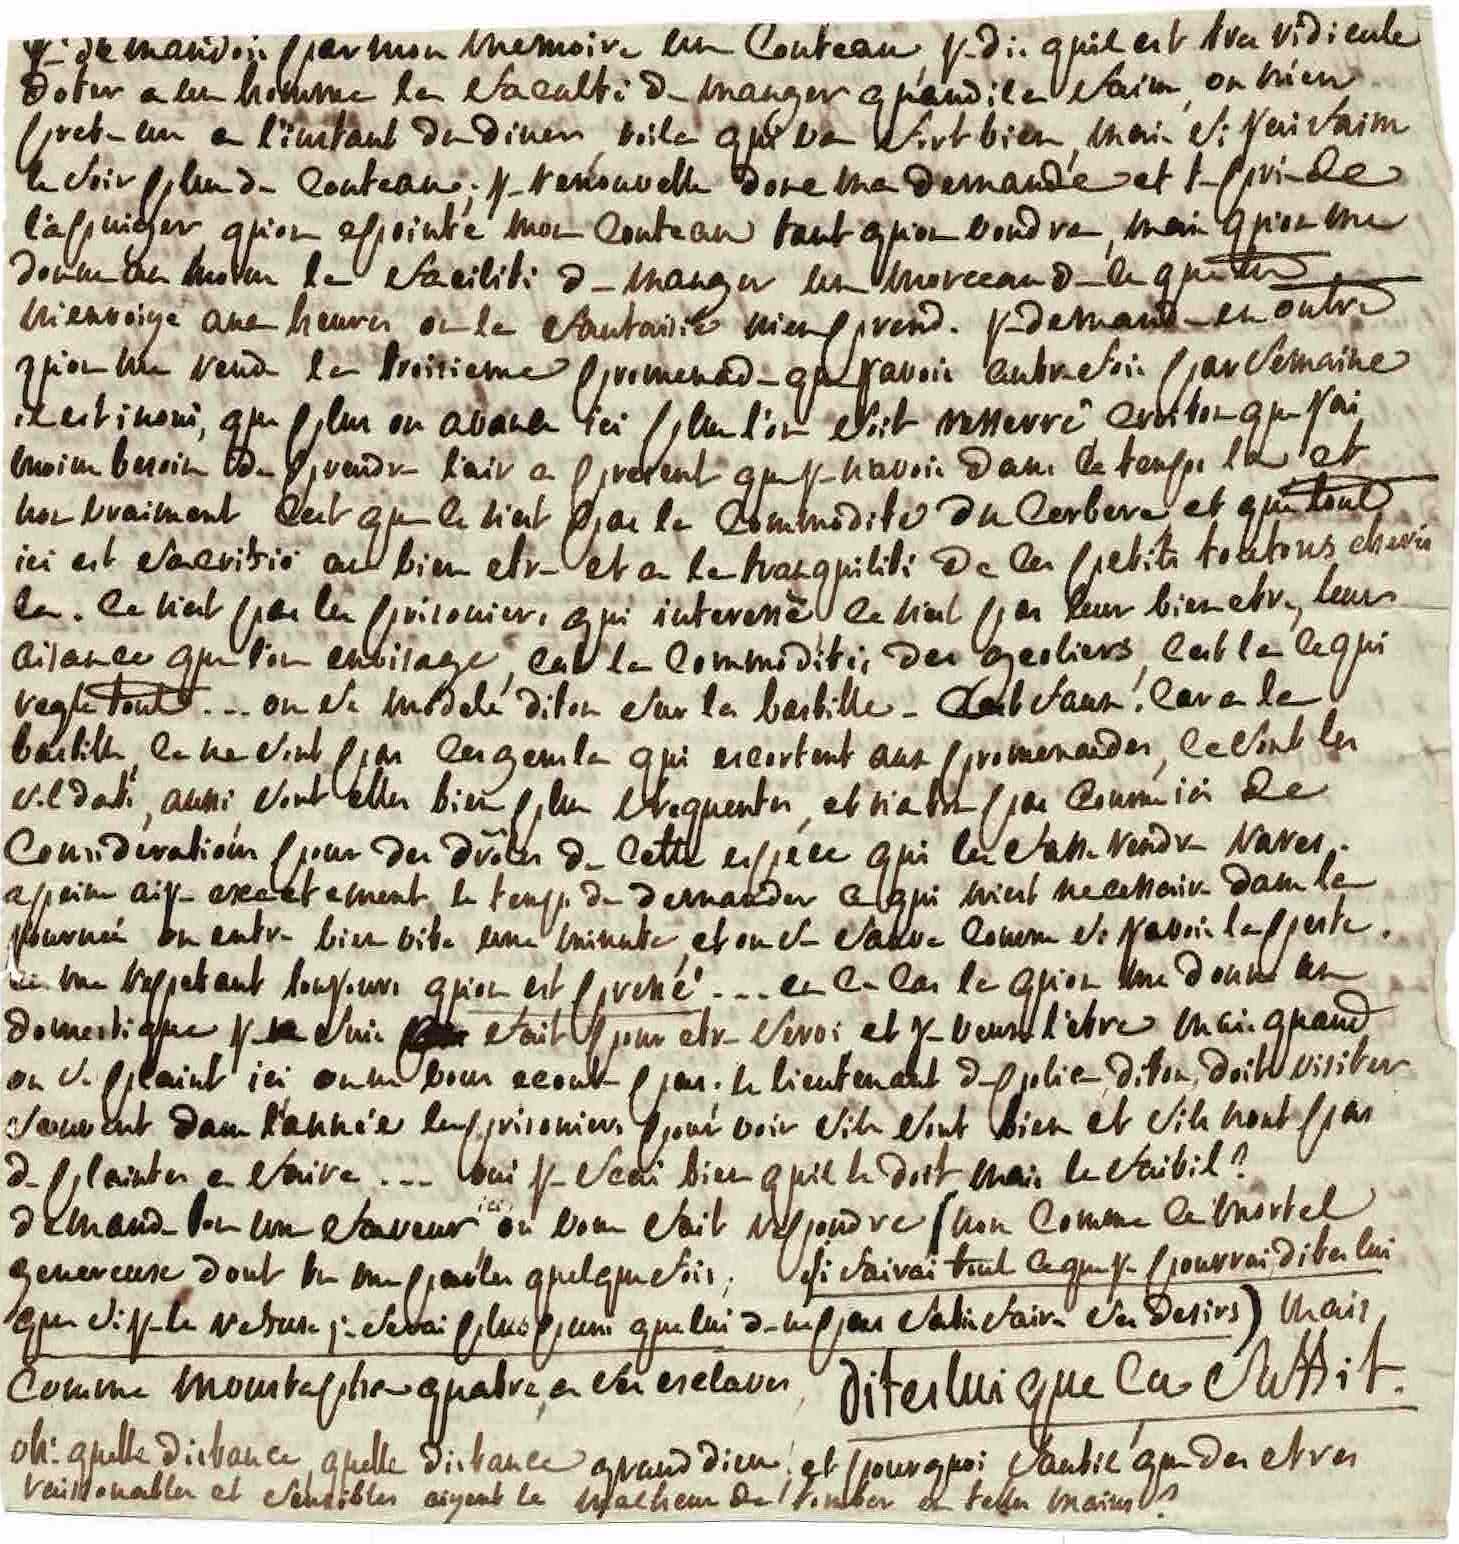 je demandois par mon memoire un couteau, je dis quil est tres ridicule
doter a un homme la faculté de manger quand il a faim, on m'en
prete un a l'instant du diner voila qui va fort bien, mais si jai faim
le soir plus de couteau; je renouvelle donc ma demande et te prie de
l'apuier, qu'on epointe mon couteau tant qu'on voudra, mais qu'on me
donne au moins la facilité de manger un morceau de ce que tu
m'envoige aux heures ou la fantaisie m'en prend. je demande en outre
qu'on me rende la troisieme promenade que javois autrefois par semaine
il est inoui, que plus on avance ici plus l'on soit resserré croiton que jai
moins besoin de prendre l'air a present que je n'avois dans ce temps la et
non vraiment cest que ce nest pas la commodité du cerbere et que tout
ici est sacrifié au bien etre et a la tranquilité de ces petits toutous cheris
la. ce nest pas les prisoniers qui interesse ce nest pas leur bien etre, leurs
aisance que l'on envisage, cest la commoditée des geoliers, cest la ce qui
regle tout ... on se modele diton sur la bastille - cest faux! car a la
bastille, ce ne sont pas ces gens la qui escortent aux promenades, ce sont les
soldats, aussi sont elles bien plus frequentes, et n'a ton pas comme ici de
considerations pour des drôles de cette espéce qui les fasse rendre rares.
a peine aije exactement le temps de demander ce qui m'est necessaire dans la
journée on entre bien vite une minute, et on se sauve comme si javois la peste.
en me repetant toujours qu'on est pressé! ... en ce cas la qu'on me donne un
domestique je suis fait pour etre servi et je veux l'etre mais quand
on se plaint ici on ne vous ecoute pas. le lieutenant de police, diton, doit visiter
souvent dans l'année les prisoniers pour voir sils sont bien et sils n'ont pas
de plaintes a faire ... oui je scai bien quil le doit mais le faitil?
demande ton une faveur ici on vous fait repondre (non comme ce mortel
genereux dont tu me parles quelquefois, si fairai tout ce que je pourrai, dites lui
que si je le refuse je serai plus puni que lui de ne pas satisfaire ses desirs) mais
comme moustapha quatre, a ses esclaves, dites lui que ca suffit.
oh! quelle distance, quelle distance grand dieu! et pourquoi fautil que des etres
raisonnables et sensibles aiyent le malheur de tomber en telles mains?